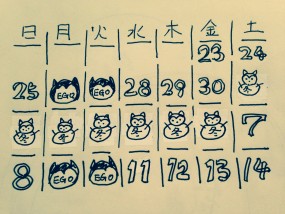 日 月 火 水 木 金 土
23 24
25 EGO EGO 28 29 30 冬
冬 冬 冬 冬 冬 冬 7
8 EGO EGO 11 12 13 14